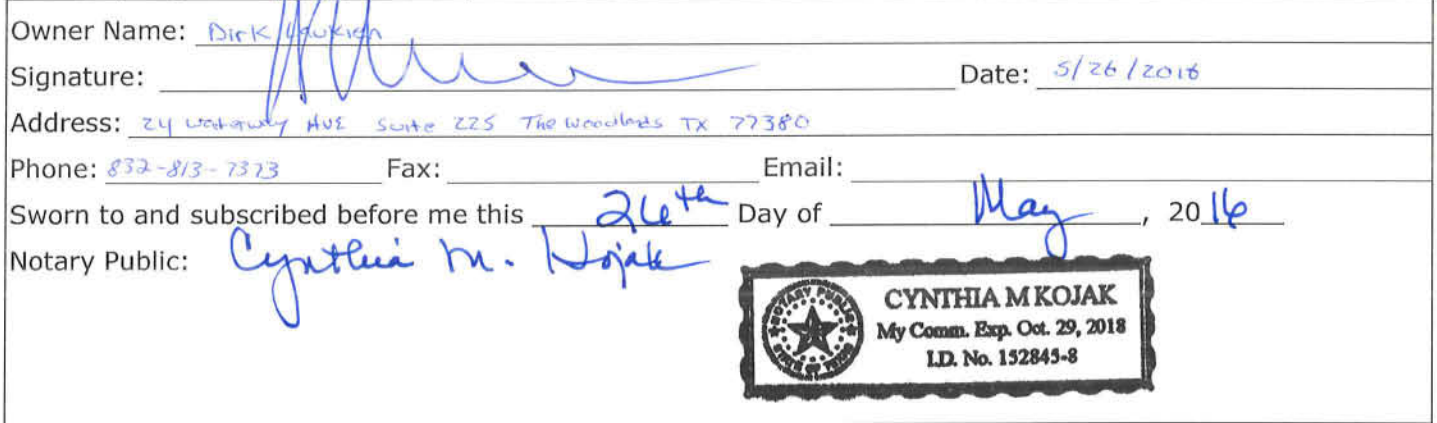 Owner Name: Dirk Laukien
Signature:
Date: 5/26/2016
Address: 24 Waterway AVE Suite 225 The Woodlands TX 77380
Phone: 832-813-7373 Fax: Email:
Sworn to and subscribed before me this 26th Day of May, 2016
Notary Public: Cynthia M. Kojak
NOTARY PUBLIC
STATE OF TEXAS
CYNTHIA M KOJAK
My Comm. Exp. Oct. 29, 2018
I.D. No. 152845-8